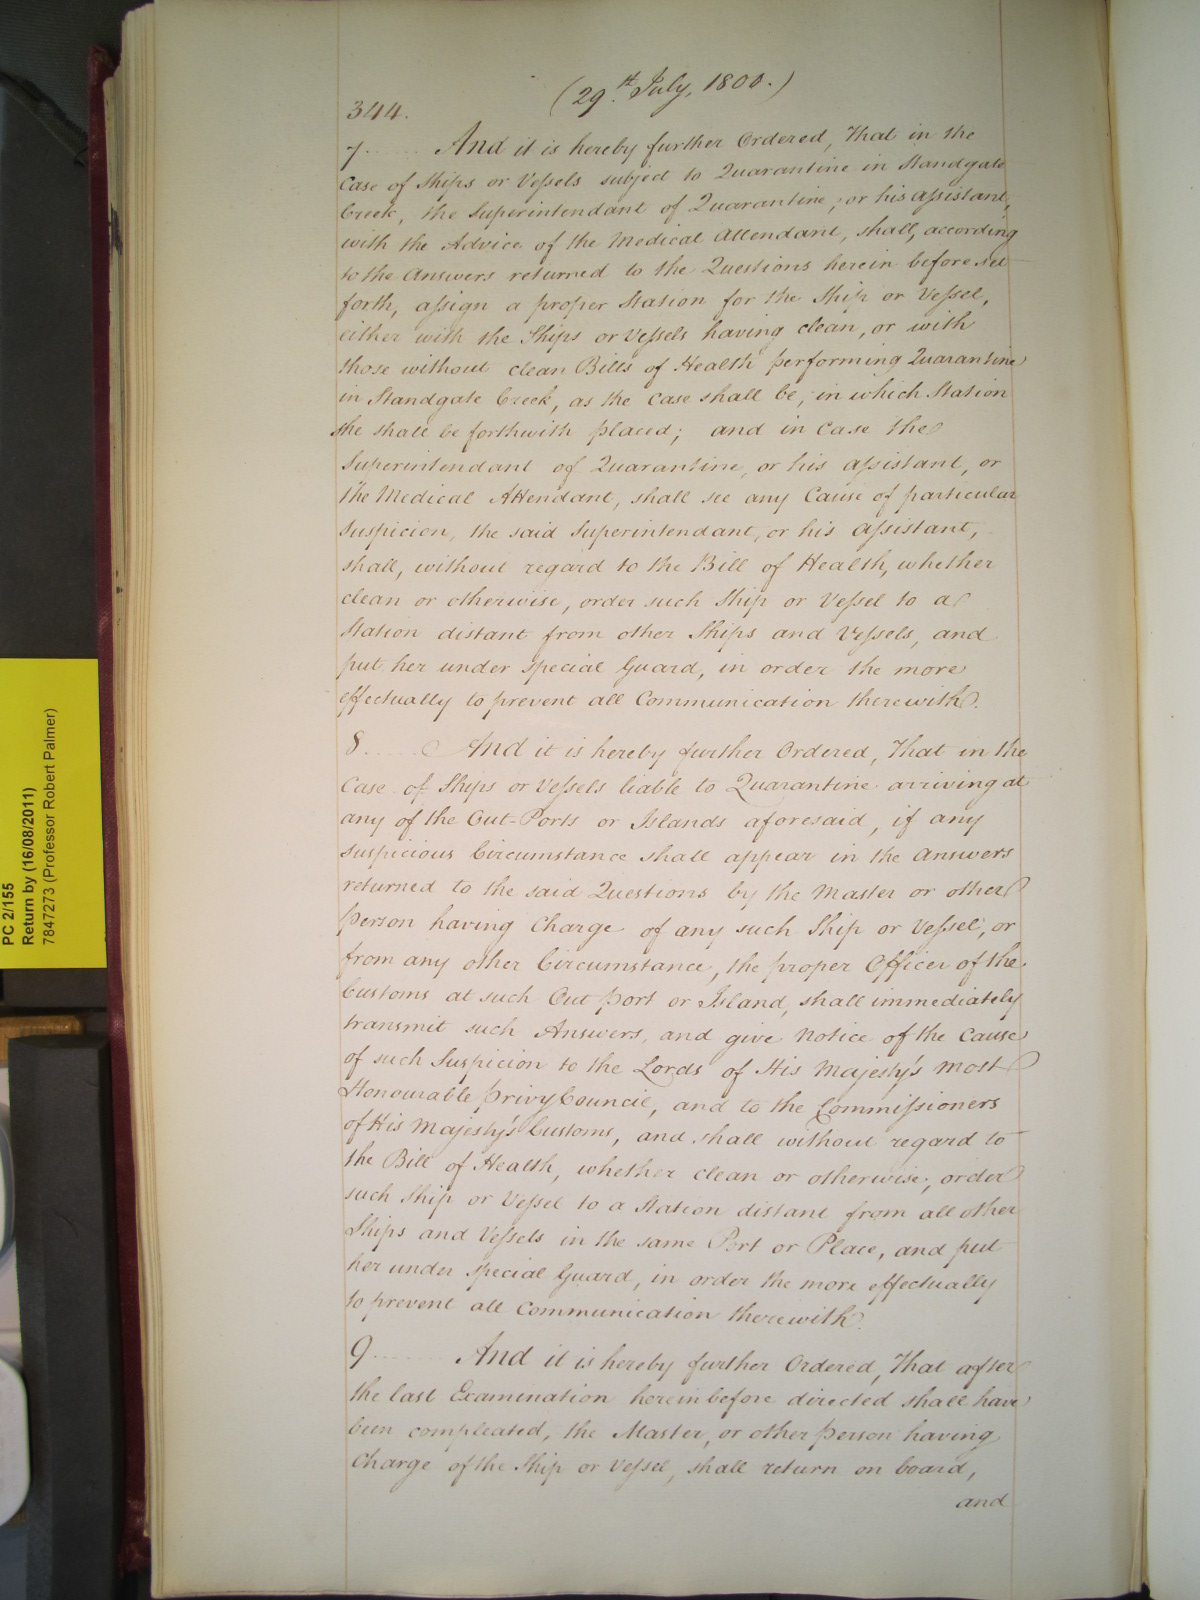 PC 2/155
Return by (16/08/2011)
7847273 (Professor Robert Palmer)
(29.th July, 1800.)
344.
7 ...... And it is hereby further Ordered, That in the
Case of Ships or Vessels subject to Quarantine in Standgate
Creek, the Superintendant of Quarantine, or his assistant,
with the Advice of the Medical Attendant, shall, according
to the Answers returned to the Questions herein before set
forth, assign a proper Station for the Ship or Vessel,
either with the Ships or Vessels having clean, or with
those without clean Bills of Health performing Quarantine
in Standgate Creek, as the Case shall be, in which Station
she shall be forthwith placed; and in Case the
Superintendant of Quarantine, or his assistant, or
the Medical Attendant, shall see any Cause of particular
Suspicion, the said Superintendant, or his assistant,
shall, without regard to the Bill of Health, whether
clean or otherwise, order such Ship or Vessel to a
Station distant from other Ships and Vessels, and
put her under special Guard, in order the more
effectually to prevent all Communication therewith.
8 ...... And it is hereby further Ordered, That in the
Case of Ships or Vessels liable to Quarantine arriving at
any of the Out-Ports or Islands aforesaid, if any
suspicious Circumstance shall appear in the Answers
returned to the said Questions by the Master or other
Person having Charge of any such Ship or Vessel, or
from any other Circumstance, the proper Officer of the
Customs at such Out Port or Island, shall immediately
transmit such Answers, and give Notice of the Cause
of such Suspicion to the Lords of His Majesty's most
Honourable Privy Council, and to the Commissioners
of His Majesty's Customs, and shall without regard to
the Bill of Health, whether clean or otherwise, order
such Ship or Vessel to a Station distant from all other
Ships and Vessels in the same Port or Place, and put
her under special Guard, in order the more effectually
to prevent all Communication therewith.
9 ...... And it is hereby further Ordered, That after
the last Examination herein before directed shall have
been compleated, the Master, or other Person having
Charge of the Ship or Vessel, shall return on board,
and